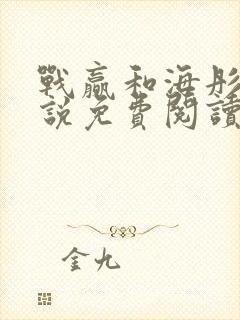 戰贏和海彤
說免費閱讀
金九